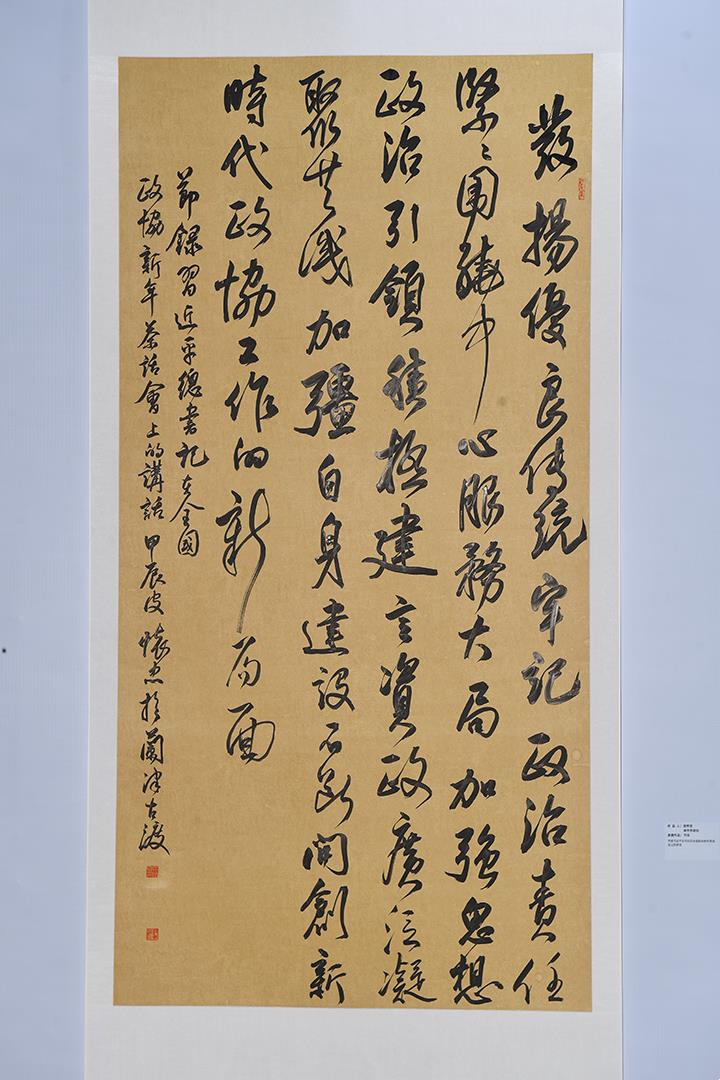 發揚優良傳統牢記政治責任
緊〻圍繞中心服務大局加強思想
政治引領積極建言資政廣泛凝
聚共識加彊自身建設不斷開創新
時代政協工作的新局面
節錄習近平總書記在全國
政協新年茶話會上的講話 甲辰 懷忠於蘭津古渡